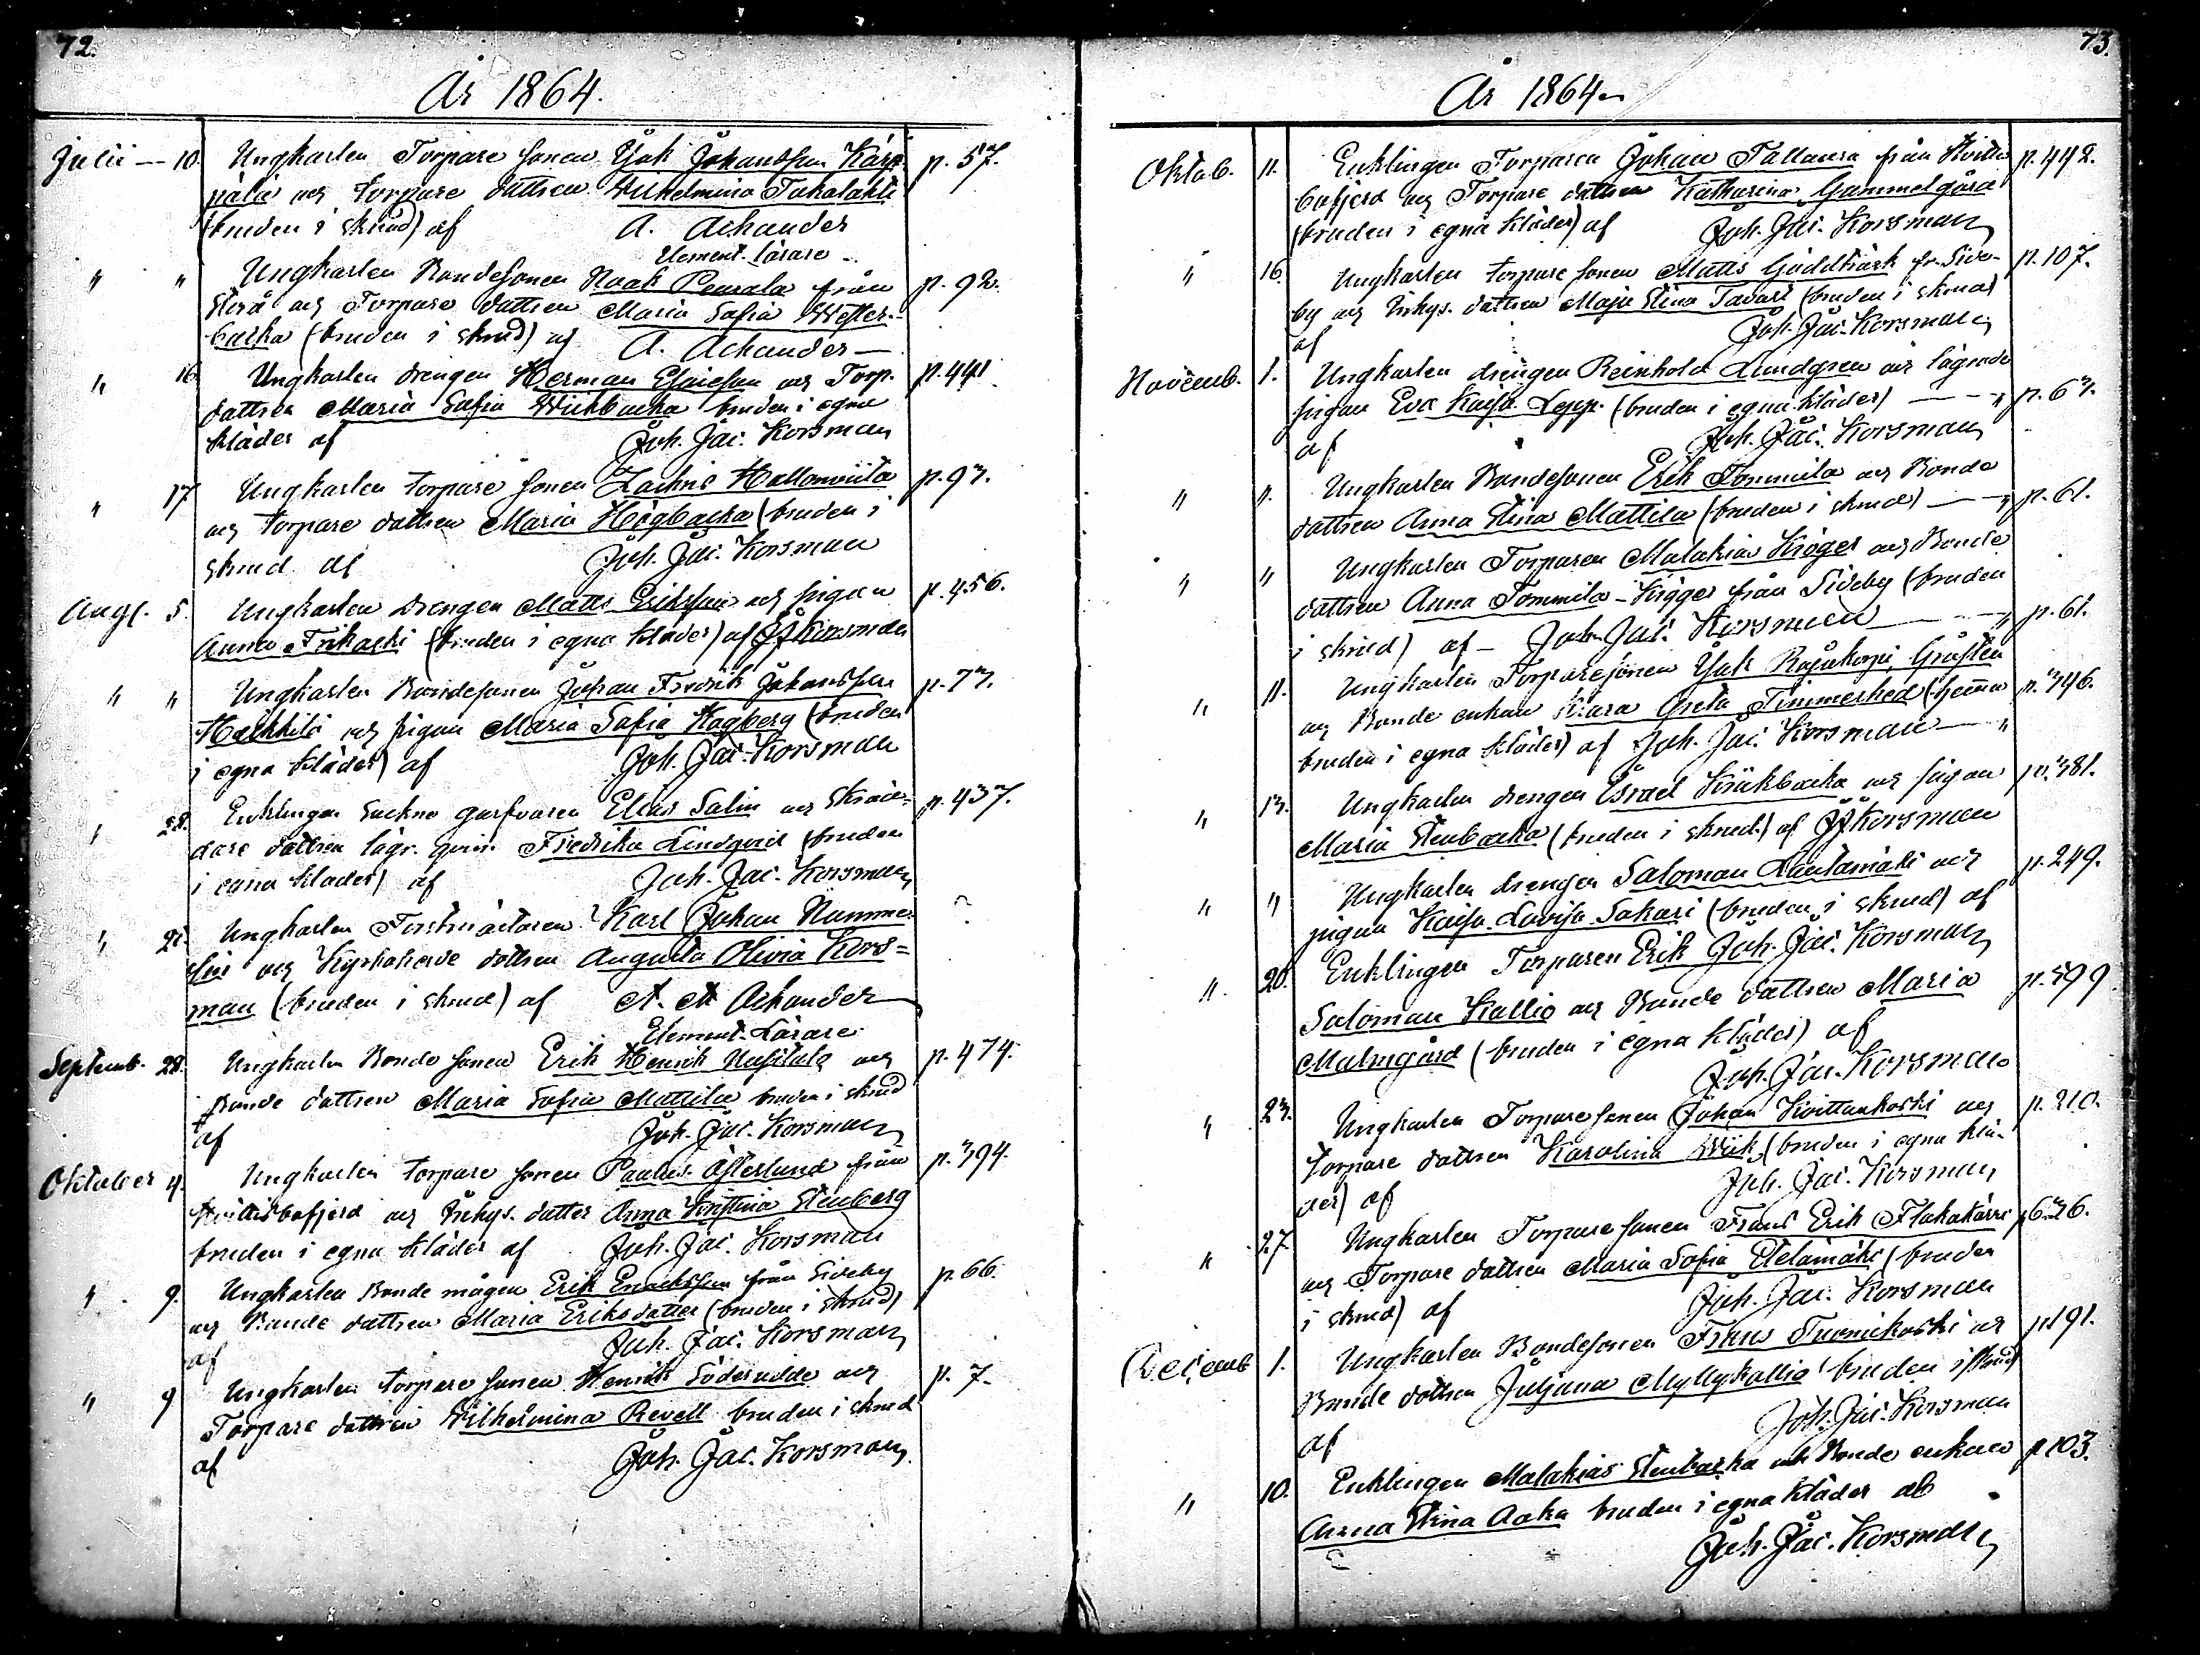 72.
År 1864.
Julii — 10. Ungkarlen Torpare sonen Isak Johansson Karp- p. 57.
pälä och torpare dottren Wilhelmina Takalahti
(bruden i skrud) af A. Achander
Element. lärare
" " Ungkarlen Bondesonen Noak Peurala från p. 92.
Storå och Torpare dottren Maria Sofia Wester-
backa (bruden i skrud) af A. Achander —
" 16. Ungkarlen drengen Herman Esaiesson och Torp. p. 441.
dottren Maria Sofia Wickbacka bruden i egna
kläder af Joh. Jac. Korsman
" 17 Ungkarlen torpare sonen Zachris p. 93.
och torpare dottren Maria Högbacka (bruden i
skrud af Joh. Jac. Korsman
Aug. 5. Ungkarlen drengen Matts Eriksson och pigan p. 456.
Anna (bruden i egna kläder) af JJKorsman
" " Ungkarlen Bondesonen Johan Fredrik Johansson p. 73.
Heikkilä och pigan Maria Sofia Hagberg (bruden
i egna kläder) af Joh. Jac. Korsman
" 28. Enklingen Sockne garfvaren Elias Salin och Skräd- p. 437.
dare dottren Fredrika Lindqvist (bruden
i egna kläder) af Joh. Jac. Korsman
" 21. Ungkarlen Forstmästaren Karl Johan Numme- ?
lin och Kyrkoherde dottren Augusta Olivia Kors=
man (bruden i skrud) af A. A Achander
Element. Lärare
Septemb. 28. Ungkarlen Bonde sonen Erik Henrik och p. 474.
Bonde dottren Maria Sofia Mattila bruden i skrud
af Joh. Jac. Korsman
Oktober 4. Ungkarlen torpare sonen Paulus Österlund från p. 394.
och Inhys. dotter Anna Kristina Stenberg
bruden i egna kläder af Joh. Jac. Korsman
" 9. Ungkarlen Bonde mågen Erik Ericksson från Sideby p. 66.
och Bonde dottren Maria Eriksdotter (bruden i skrud)
af Joh. Jac. Korsman
" 9 Ungkarlen torpare sonen Henrik Söderudde och p. 7.
Torpare dottren Wilhelmina Revell bruden i skrud
af Joh. Jac. Korsman
73.
År 1864
Oktob. 11. Enklingen Torparen Johan Tallaura från p. 442.
och Torpare dottren Katharina Gammelgård
(bruden i egna kläder) af Joh. Jac. Korsman
" 16. Ungkarlen torpare sonen Matts Gäddträsk fr. Side- p. 107.
by och Inhys. dottren Maja Stina Tavast (bruden i skrud)
af Joh. Jac. Korsman
Novemb. 1. Ungkarlen drengen Reinhold Lundgren och lägerade
pigan Eva Kajsa Lepp. (bruden i egna kläder) — — " p. 63.
af Joh. Jac. Korsman
" ". Ungkarlen Bondesonen Erik Tommila och Bonde
dottren Anna Stina Mattila (bruden i skrud) — " p. 61.
" " Ungkarlen Torparen Malakias Kröger och Bonde
dottren Anna Tommila-Krögger från Sideby (bruden
i skrud) af — Joh. Jac. Korsman — — " p. 61.
" 11. Ungkarlen Torparesonen Isak Gråsten
och Bonde enkan Greta Timmerhed (hemma p. 346.
bruden i egna kläder) af Joh. Jac. Korsman — "
" 13. Ungkarlen drengen Israel Kråkbacka och pigan p. 381.
Maria Stenbacka (bruden i skrud) af JJKorsman
" " Ungkarlen drengen Saloman Lautamäki och p. 249.
pigan Kajsa Lovisa Sakari (bruden i skrud) af
Joh. Jac. Korsman
" 20. Enklingen Torparen Erik
Saloman Kallio och Bonde dottren Maria p. 599
Malmgård (bruden i egna kläder) af
Joh. Jac. Korsman
" 23. Ungkarlen Torparesonen Johan Koittankoski och p. 210.
torpare dottren Karolina Wiik (bruden i egna klä-
der) af Joh. Jac. Korsman
" 27. Ungkarlen Torparesonen Frans Erik Flakakärri p. 636.
och Torpare dottren Maria Sofia Etelämäki (bruden
i skrud) af Joh. Jac. Korsman
Decemb 1. Ungkarlen Bondesonen Frans Tuorniskoski och p. 191.
Bonde dottren Juljana Myllykallio (bruden i skrud
af Joh. Jac. Korsman
" 10. Enklingen Malakias Stenbacka och Bonde enkan p. 103.
Anna Stina Aaka bruden i egna kläder af
Joh. Jac. Korsman